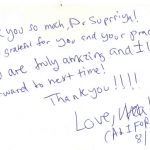 you so much, Dr Supriya!
grateful for you and your
are truly amazing and I
ward to next time!
Thank you!!!!
Love,